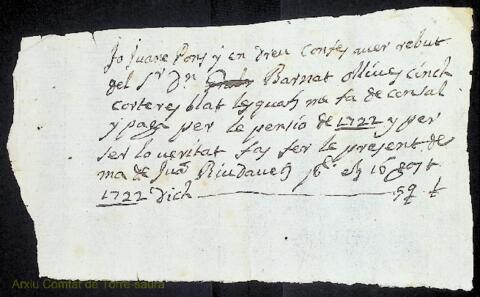 Jo Juane Pons y en Dreu Confes aver rebut
del Sr Dn Barnat ollives cinch
corteres blat lesquals ma fa de censal
y paga per la pensio de 1722 y per
ser lo veritat fas fer le present de
ma de Juā Riudaueḡ als 16 agost
1722 Dich
Arxiu Comtat de Torre-saura